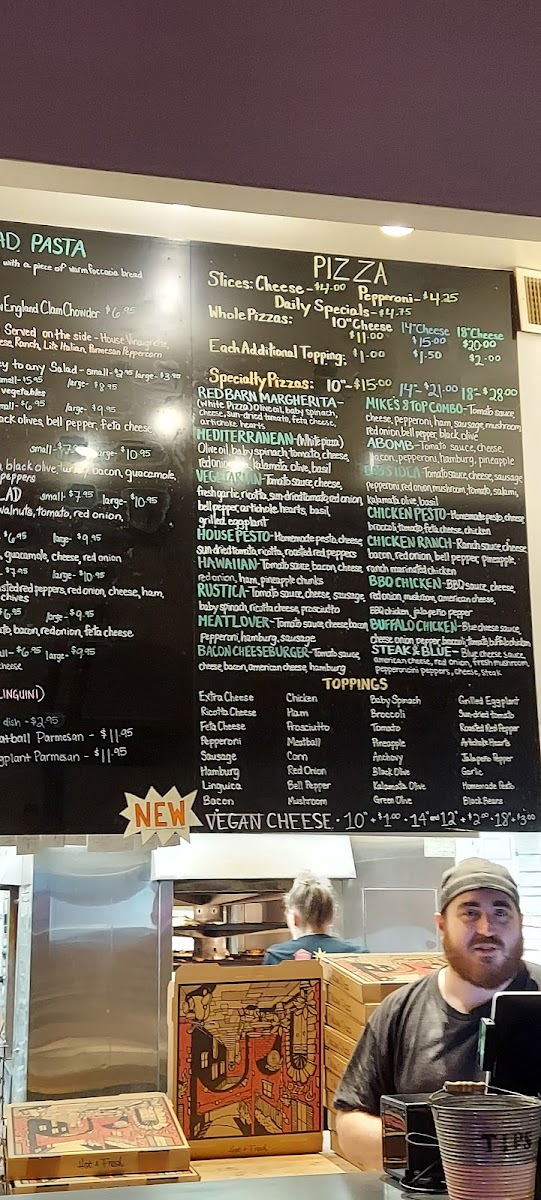 AD, PASTA
with a piece of warm foccacia bread
England Clam Chowder $6.95
Served on the side - House Vinaigrette,
Ranch, Lite Italian, Parmesan Peppercorn
to any Salad - small - $2.95 large - $3.95
small - $5.95 large - $8.95
vegetables
small - $6.95 large - $9.95
olives, bell pepper, feta cheese
small - large - $10.95
black olive, bacon, guacamole,
peppers
small - $7.95 large - $10.95
walnuts, tomato, red onion,
$6.95 large - $9.95
guacamole, cheese, red onion
large - $10.95
red peppers, red onion, cheese, ham,
chives
$6.95 large - $9.95
bacon, red onion, feta cheese
$6.95 large - $9.95
cheese
LINGUINI)
dish - $2.95
Parmesan - $11.95
Parmesan - $11.95
PIZZA
Slices: Cheese - $4.00 Pepperoni - $4.25
Daily Specials - $4.75
Whole Pizzas: 10" Cheese 14" Cheese 18" Cheese
$11.00 $15.00 $20.00
Each Additional Topping: $1.00 $1.50 $2.00
Specialty Pizzas: 10" - $15.00 14" - $21.00 18" - $28.00
RED BARN MARGHERITA -
(White Pizza) Olive oil, baby spinach,
cheese, sun-dried tomato, feta cheese,
artichoke hearts
MEDITERRANEAN - (White pizza)
Olive oil, baby spinach, tomato, cheese,
red onion, kalamata olive, basil
VEGETARIAN - Tomato sauce, cheese,
fresh garlic, ricotta, sun dried tomato, red onion,
bell pepper, artichoke hearts, basil,
grilled eggplant
HOUSE PESTO - Homemade pesto, cheese,
sun dried tomato, ricotta, roasted red peppers
HAWAIIAN - Tomato sauce, bacon, cheese,
red onion, ham, pineapple chunks
RUSTICA - Tomato sauce, cheese, sausage,
baby spinach, ricotta cheese, prosciutto
MEATLOVER - Tomato sauce, cheese, bacon,
pepperoni, hamburg, sausage
BACON CHEESEBURGER - Tomato sauce,
cheese, bacon, american cheese, hamburg
MIKE'S 8 TOP COMBO - Tomato sauce,
cheese, pepperoni, ham, sausage, mushroom
red onion, bell pepper, black olive
ABOMB - Tomato sauce, cheese,
bacon, pepperoni, hamburg, pineapple
Tomato sauce, cheese, sausage
pepperoni, red onion, mushroom, tomato, salami,
kalamata olive, basil
CHICKEN PESTO - Homemade pesto, cheese
broccoli, tomato, feta cheese, chicken
CHICKEN RANCH - Ranch sauce, cheese,
bacon, red onion, bell pepper, pineapple,
ranch marinated chicken
BBQ CHICKEN - BBQ sauce, cheese,
red onion, mushroom, american cheese,
BBQ chicken, jalapeño pepper
BUFFALO CHICKEN - Blue cheese sauce,
cheese, onion, pepper, broccoli, tomato, buffalo chicken
STEAK & BLUE - Blue cheese sauce,
american cheese, red onion, fresh mushroom,
pepperoncini peppers, cheese, steak
TOPPINGS
Extra Cheese Chicken Baby Spinach Grilled Eggplant
Ricotta Cheese Ham Broccoli Sun-dried tomato
Feta Cheese Prosciutto Tomato Roasted Red Pepper
Pepperoni Meatball Pineapple Artichoke Hearts
Sausage Corn Anchovy Jalapeño Pepper
Hamburg Red Onion Black Olive Garlic
Linguica Bell Pepper Kalamata Olive Homemade Pesto
Bacon Mushroom Green Olive Black Beans
NEW VEGAN CHEESE · 10" + $1.00 · 14" and 12" + $2.00 · 18" + $3.00
Hot & Fresh
Hot & Fresh
TIPS